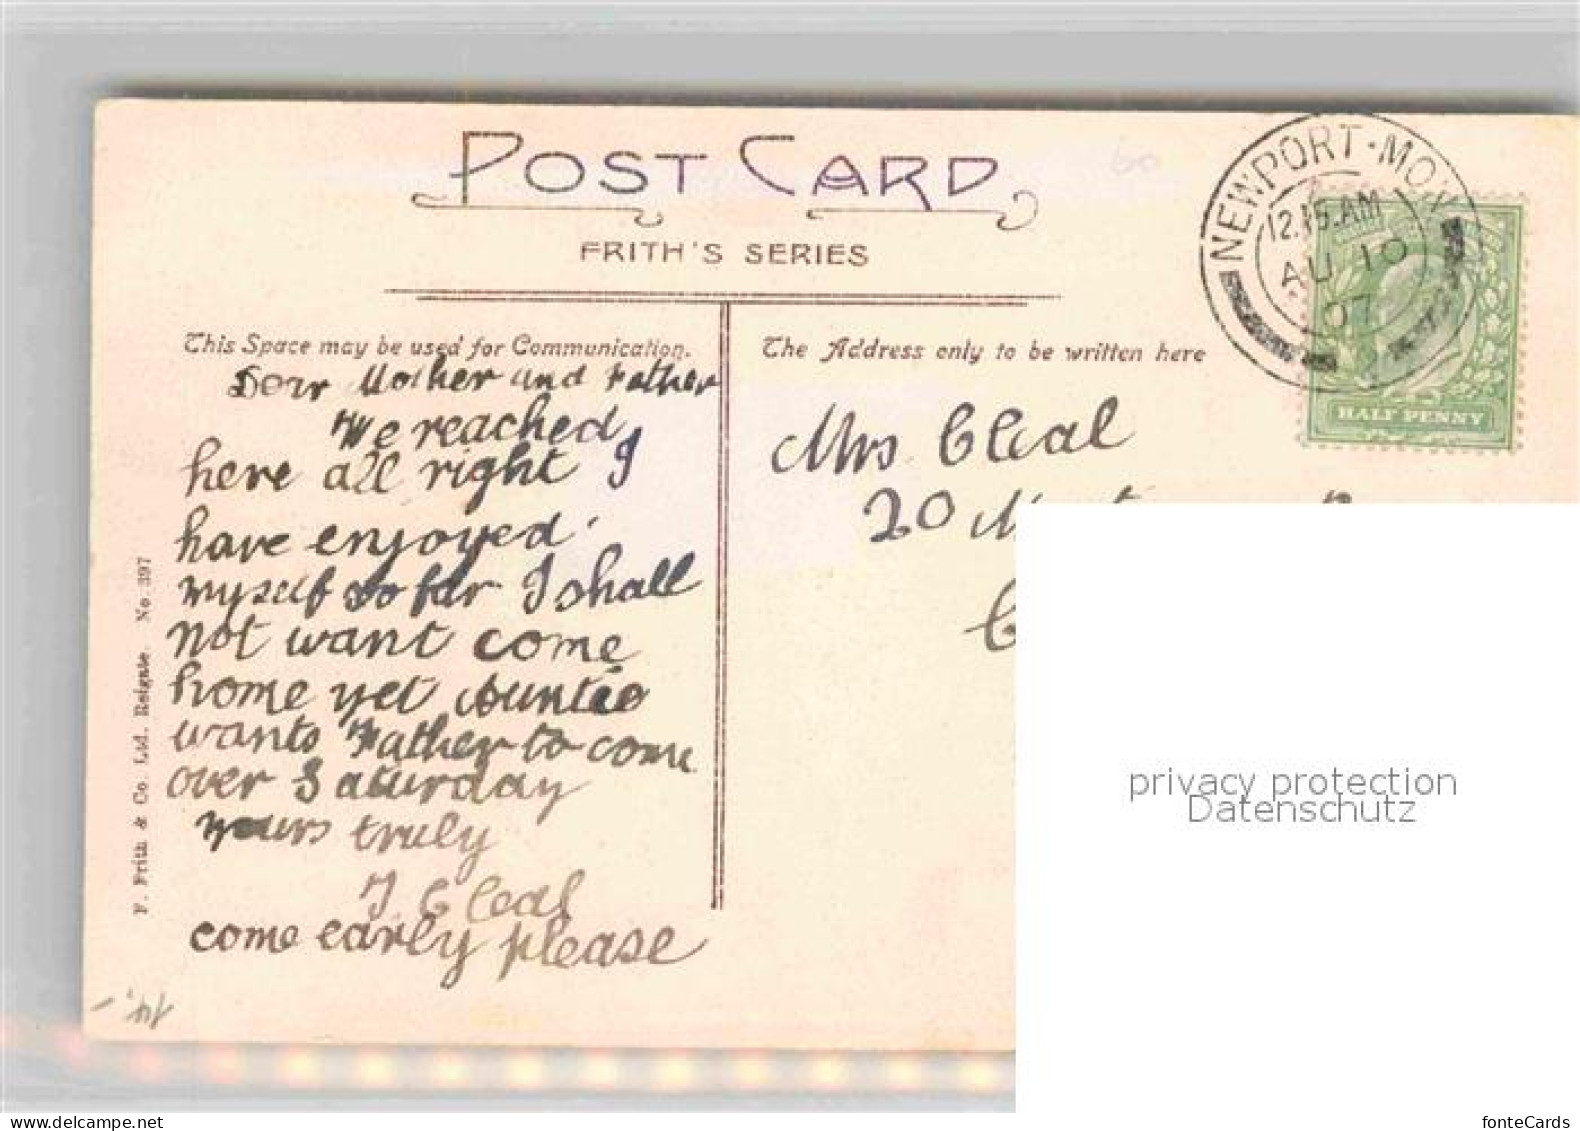 POST CARD
FRITH'S SERIES
NEWPORT·MON
12.15.AM
AU 10
07
HALF PENNY
This Space may be used for Communication.
The Address only to be written here
Dear Mother and Father
We reached
here all right I
have enjoyed
myself so far I shall
not want come
home yet Auntie
wants Father to come
over Saturday
yours truly
J Cleal
come early please
Mrs Cleal
20
F. Frith & Co. Ltd. Reigate. No. 397
privacy protection
Datenschutz
fonteCards